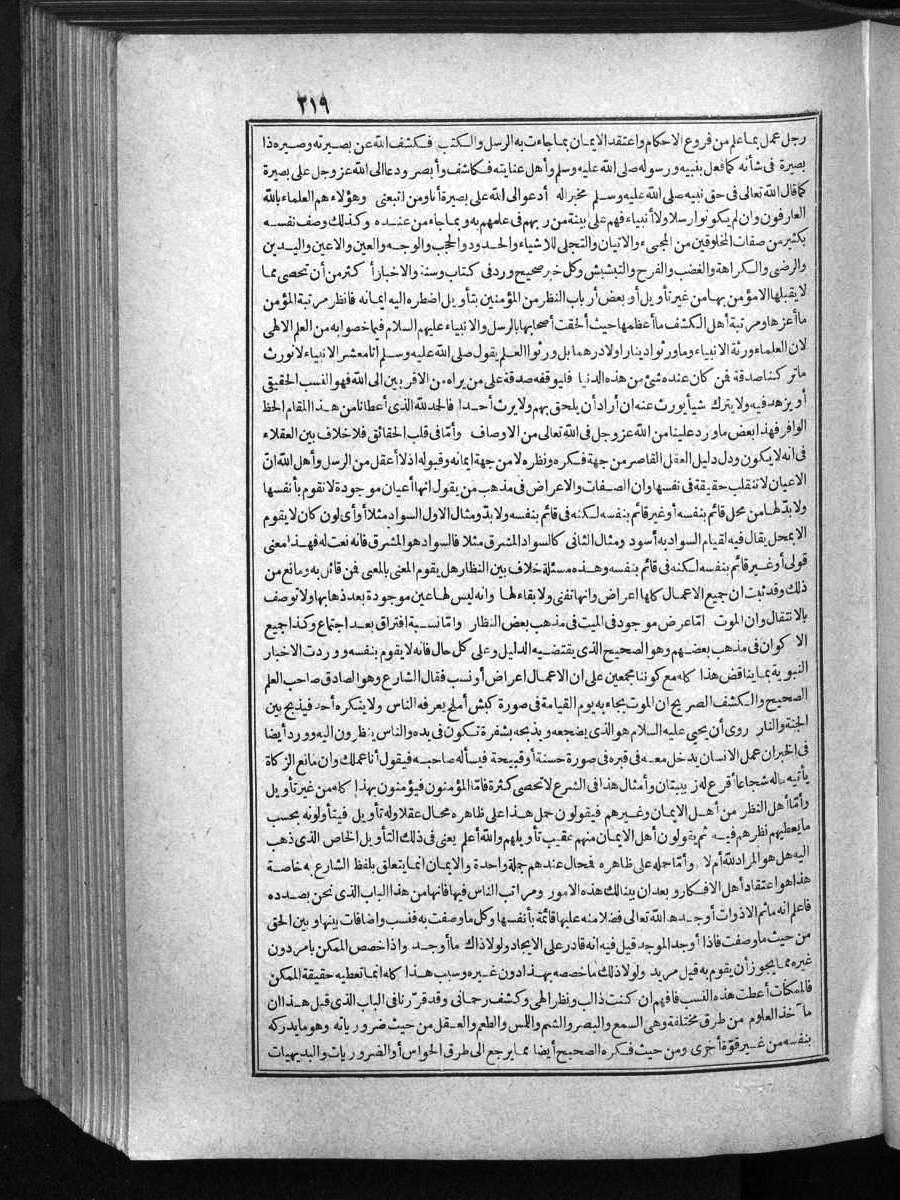 ٣١٩
رجل عمل بما علم من فروع الاحكام واعتقد الايمان بما جاءت به الرسل والكتب فكشف الله عن بصيرته وصيره ذا
بصيرة فى شأنه كما فعل بنبيه ورسوله صلى الله عليه وسلم وأهل عنايته فكاشف وأبصر ودعا الى الله عز وجل على بصيرة
كما قال الله تعالى فى حق نبيه صلى الله عليه وسلم مخبرا له أدعو الى الله على بصيرة أنا ومن اتبعنى وهؤلاء هم العلماء بالله
العارفون وان لم يكونوا رسلا ولا أنبياء فهم على بينة من ربهم فى علمهم به وبما جاء من عنده وكذلك وصف نفسه
بكثير من صفات المخلوقين من المجىء والاتيان والتجلى للاشياء والحدود والحجب والوجه والعين والاعين واليدين
والرضى والكراهة والغضب والفرح والتبشبش وكل خبر صحيح ورد فى كتاب وسنة والاخبار أكثر من أن تحصى مما
لا يقبلها الا مؤمن بها من غير تأويل أو بعض أرباب النظر من المؤمنين بتأويل اضطره اليه ايمانه فانظر مرتبة المؤمن
ما أعزها ومرتبة أهل الكشف ما أعظمها حيث ألحقت أصحابها بالرسل والانبياء عليهم السلام فيما خصوا به من العلم الالهى
لان العلماء ورثة الانبياء وما ورثوا دينارا ولا درهما بل ورثوا العلم يقول صلى الله عليه وسلم انا معشر الانبياء لا نورث
ما تركنا صدقة فمن كان عنده شئ من هذه الدنيا فليوقفه صدقة على من يراه من الاقربين الى الله فهو النسب الحقيقى
أو يزهد فيه ولا يترك شيأ يورث عنه ان أراد أن يلحق بهم ولا يرث أحدا فالحد لله الذى أعطانا من هذا المقام الحظ
الوافر فهذا بعض ما ورد علينا من الله عز وجل فى الله تعالى من الاوصاف وأما فى قلب الحقائق فلا خلاف بين العقلاء
فى انه لا يكون ودل دليل العقل القاصر من جهة فكره ونظره لا من جهة ايمانه وقبوله اذ لا أعقل من الرسل وأهل الله ان
الاعيان لا تنقلب حقيقة فى نفسها وان الصفات والاعراض فى مذهب من يقول انها أعيان موجودة لا تقوم بأنفسها
ولا بد لها من محل قائم بنفسه أو غير قائم بنفسه لكنه فى قائم بنفسه ولا بد ومثال الاول السواد مثلا أو أى لون كان لا يقوم
الا بمحل يقال فيه لقيام السواد به أسود ومثال الثانى كالسواد المشرق مثلا فالسواد هو المشرق فانه نعت له فهذا معنى
قولى أو غير قائم بنفسه لكنه فى قائم بنفسه وهذه مسئلة خلاف بين النظار هل يقوم المعنى بالمعنى فمن قائل به ومانع من
ذلك وقد ثبت ان جميع الاعمال كلها اعراض وانها تفنى ولا بقاء لها وانه ليس لها عين موجودة بعد ذهابها ولا توصف
بالانتقال وان الموت اما عرض موجود فى الميت فى مذهب بعض النظار واما نسبة افتراق بعد اجتماع وكذا جميع
الاكوان فى مذهب بعضهم وهو الصحيح الذى يقتضيه الدليل وعلى كل حال فانه لا يقوم بنفسه ووردت الاخبار
النبوية بما يناقض هذا كله مع كوننا مجمعين على ان الاعمال اعراض أو نسب فقال الشارع وهو الصادق صاحب العلم
الصحيح والكشف الصريح ان الموت يجاء به يوم القيامة فى صورة كبش أملح يعرفه الناس ولا ينكره أحد فيذبح بين
الجنة والنار روى أن يحيى عليه السلام هو الذى يضجعه ويذبحه بشفرة تكون فى يده والناس ينظرون اليه وورد أيضا
فى الخبر ان عمل الانسان يدخل معه فى قبره فى صورة حسنة أو قبيحة فيسأله صاحبه فيقول أنا عملك وان مانع الزكاة
يأتيه ماله شجاعا أقرع له زبيبتان وأمثال هذا فى الشرع لا تحصى كثرة فاما المؤمنون فيؤمنون بهذا كله من غير تأويل
وأما أهل النظر من أهل الايمان وغيرهم فيقولون حمل هذا على ظاهره محال عقلا وله تأويل فيتأولونه بحسب
ما يعطيهم نظرهم فيه ثم يقولون أهل الايمان منهم عقيب تأويلهم والله أعلم يعنى فى ذلك التأويل الخاص الذى ذهب
اليه هل هو المراد لله أم لا وأما حمله على ظاهره فمحال عندهم جملة واحدة والايمان انما يتعلق بلفظ الشارع به خاصة
هذا هو اعتقاد أهل الافكار وبعد ان بينا لك هذه الامور ومراتب الناس فيها فانها من هذا الباب الذى نحن بصدده
فاعلم انه ما ثم الا ذوات أوجدها الله تعالى فضلا منه عليها قائمة بأنفسها وكل ما وصفت به فنسب واضافات بينها وبين الحق
من حيث ما وصفت فاذا أوجد الموجد قيل فيه انه قادر على الايجاد ولولا ذاك ما أوجد واذا خصص الممكن بامر دون
غيره مما يجوز أن يقوم به قيل مريد ولولا ذلك ما خصصه بهذا دون غيره وسبب هذا كله انما تعطيه حقيقة الممكن
فالممكنات أعطت هذه النسب فافهم ان كنت ذا لب ونظر الهى وكشف رحمانى وقد قررنا فى الباب الذى قبل هذا ان
مآخذ العلوم من طرق مختلفة وهى السمع والبصر والشم واللمس والطعم والعقل من حيث ضرورياته وهو ما يدركه
بنفسه من غير قوة أخرى ومن حيث فكره الصحيح أيضا مما يرجع الى طرق الحواس أو الضروريات والبديهيات